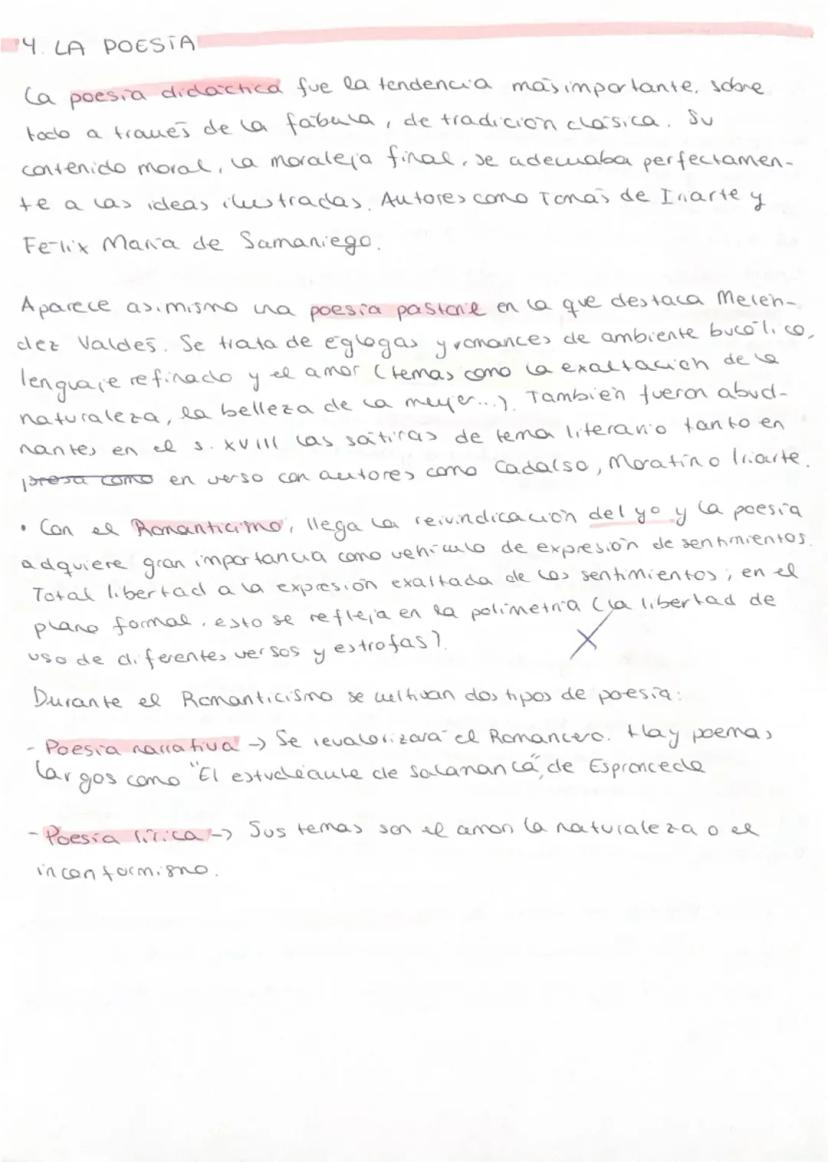 4. LA POESÍA
La poesía didáctica fue la tendencia más importante, sobre
todo a través de la fábula, de tradición clásica. Su
contenido moral, la moraleja final, se adecuaba perfectamen-
te a las ideas ilustradas. Autores como Tomás de Iriarte y
Félix María de Samaniego.
Aparece asimismo una poesía pastoril en la que destaca Melén-
dez Valdés. Se trata de églogas y romances de ambiente bucólico,
lenguaje refinado y el amor (temas como la exaltación de la
naturaleza, la belleza de la mujer...). También fueron abud-
nantes en el s. XVIII las sátiras de tema literario tanto en
prosa como en verso con autores como Cadalso, Moratín o Iriarte.
• Con el Romanticimo, llega la reivindicación del yo y la poesía
adquiere gran importancia como vehículo de expresión de sentimientos.
Total libertad a la expresión exaltada de los sentimientos; en el
plano formal, esto se refleja en la polimetría (la libertad de
uso de diferentes versos y estrofas).
Durante el Romanticismo se cultivan dos tipos de poesía:
- Poesía narrativa → Se revalorizará el Romancero. Hay poemas
largos como "El estudiante de Salamanca", de Espronceda
- Poesía lírica → Sus temas son el amor, la naturaleza o el
inconformismo.